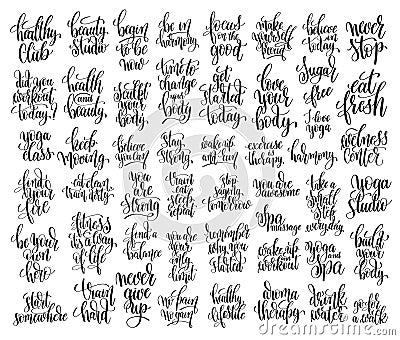 healthy
club
beauty
studio
begin
to be
now
be in
harmony
focus
on the
good
make
yourself
proud
believe
in
today
never
stop
did you
workout
today?
health
and
beauty
sculpt
your
body
time to
change
your
body
get
started
today
love
your
body
sugar
free
I love
yoga
eat
fresh
yoga
class
keep
moving
believe
you can
stay
strong
wake up
and run
exercise
is
therapy
harmony
wellness
center
find
your
fire
eat clean
train dirty
you
are
strong
train
eat
sleep
repeat
stop
saying
tomorrow
you are
awesome
take a
small
step
everyday
yoga
studio
be your
own
hero
fitness
it's a way
of life
find a
balance
you are
your
only
limit
remember
why you
started
spa
massage
wake up
and
workout
yoga
and
spa
build
your
body
start
somewhere
train
hard
never
give
up
no pain
no gain
healthy
lifestyle
aroma
therapy
drink
water
go for
a walk